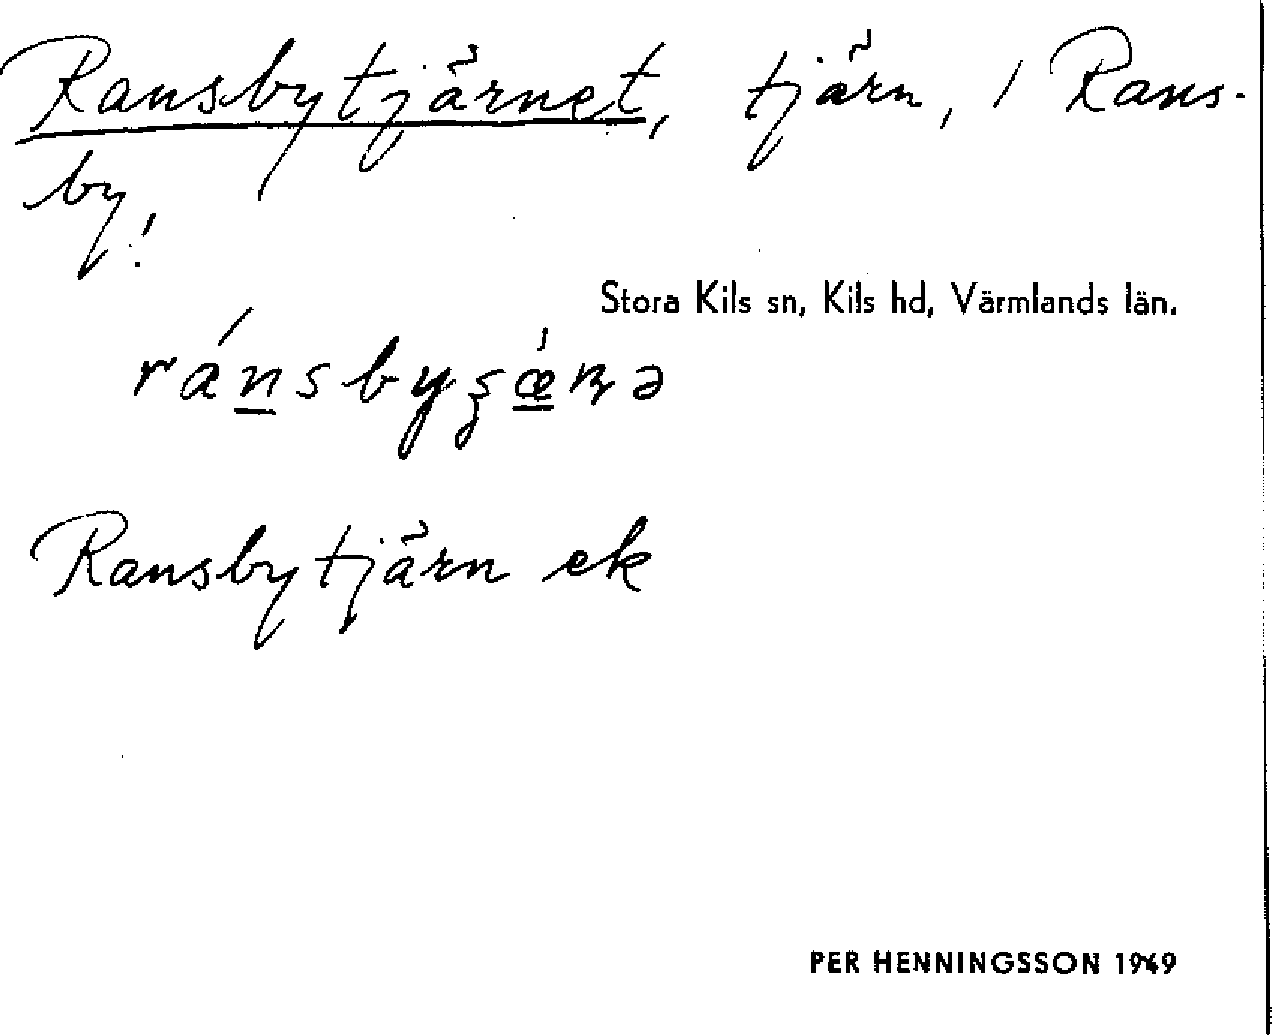 Ransbytjärnet, tjärn, i Rans-
by!
Stora Kils sn, Kils hd, Värmlands län.
ránsbyʂǽɳə
Ransbytjärn ek
PER HENNINGSSON 1949